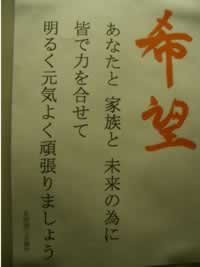 希望
あなたと 家族と 未来の為に
皆で力を合せて
明るく元気よく頑張りましょう